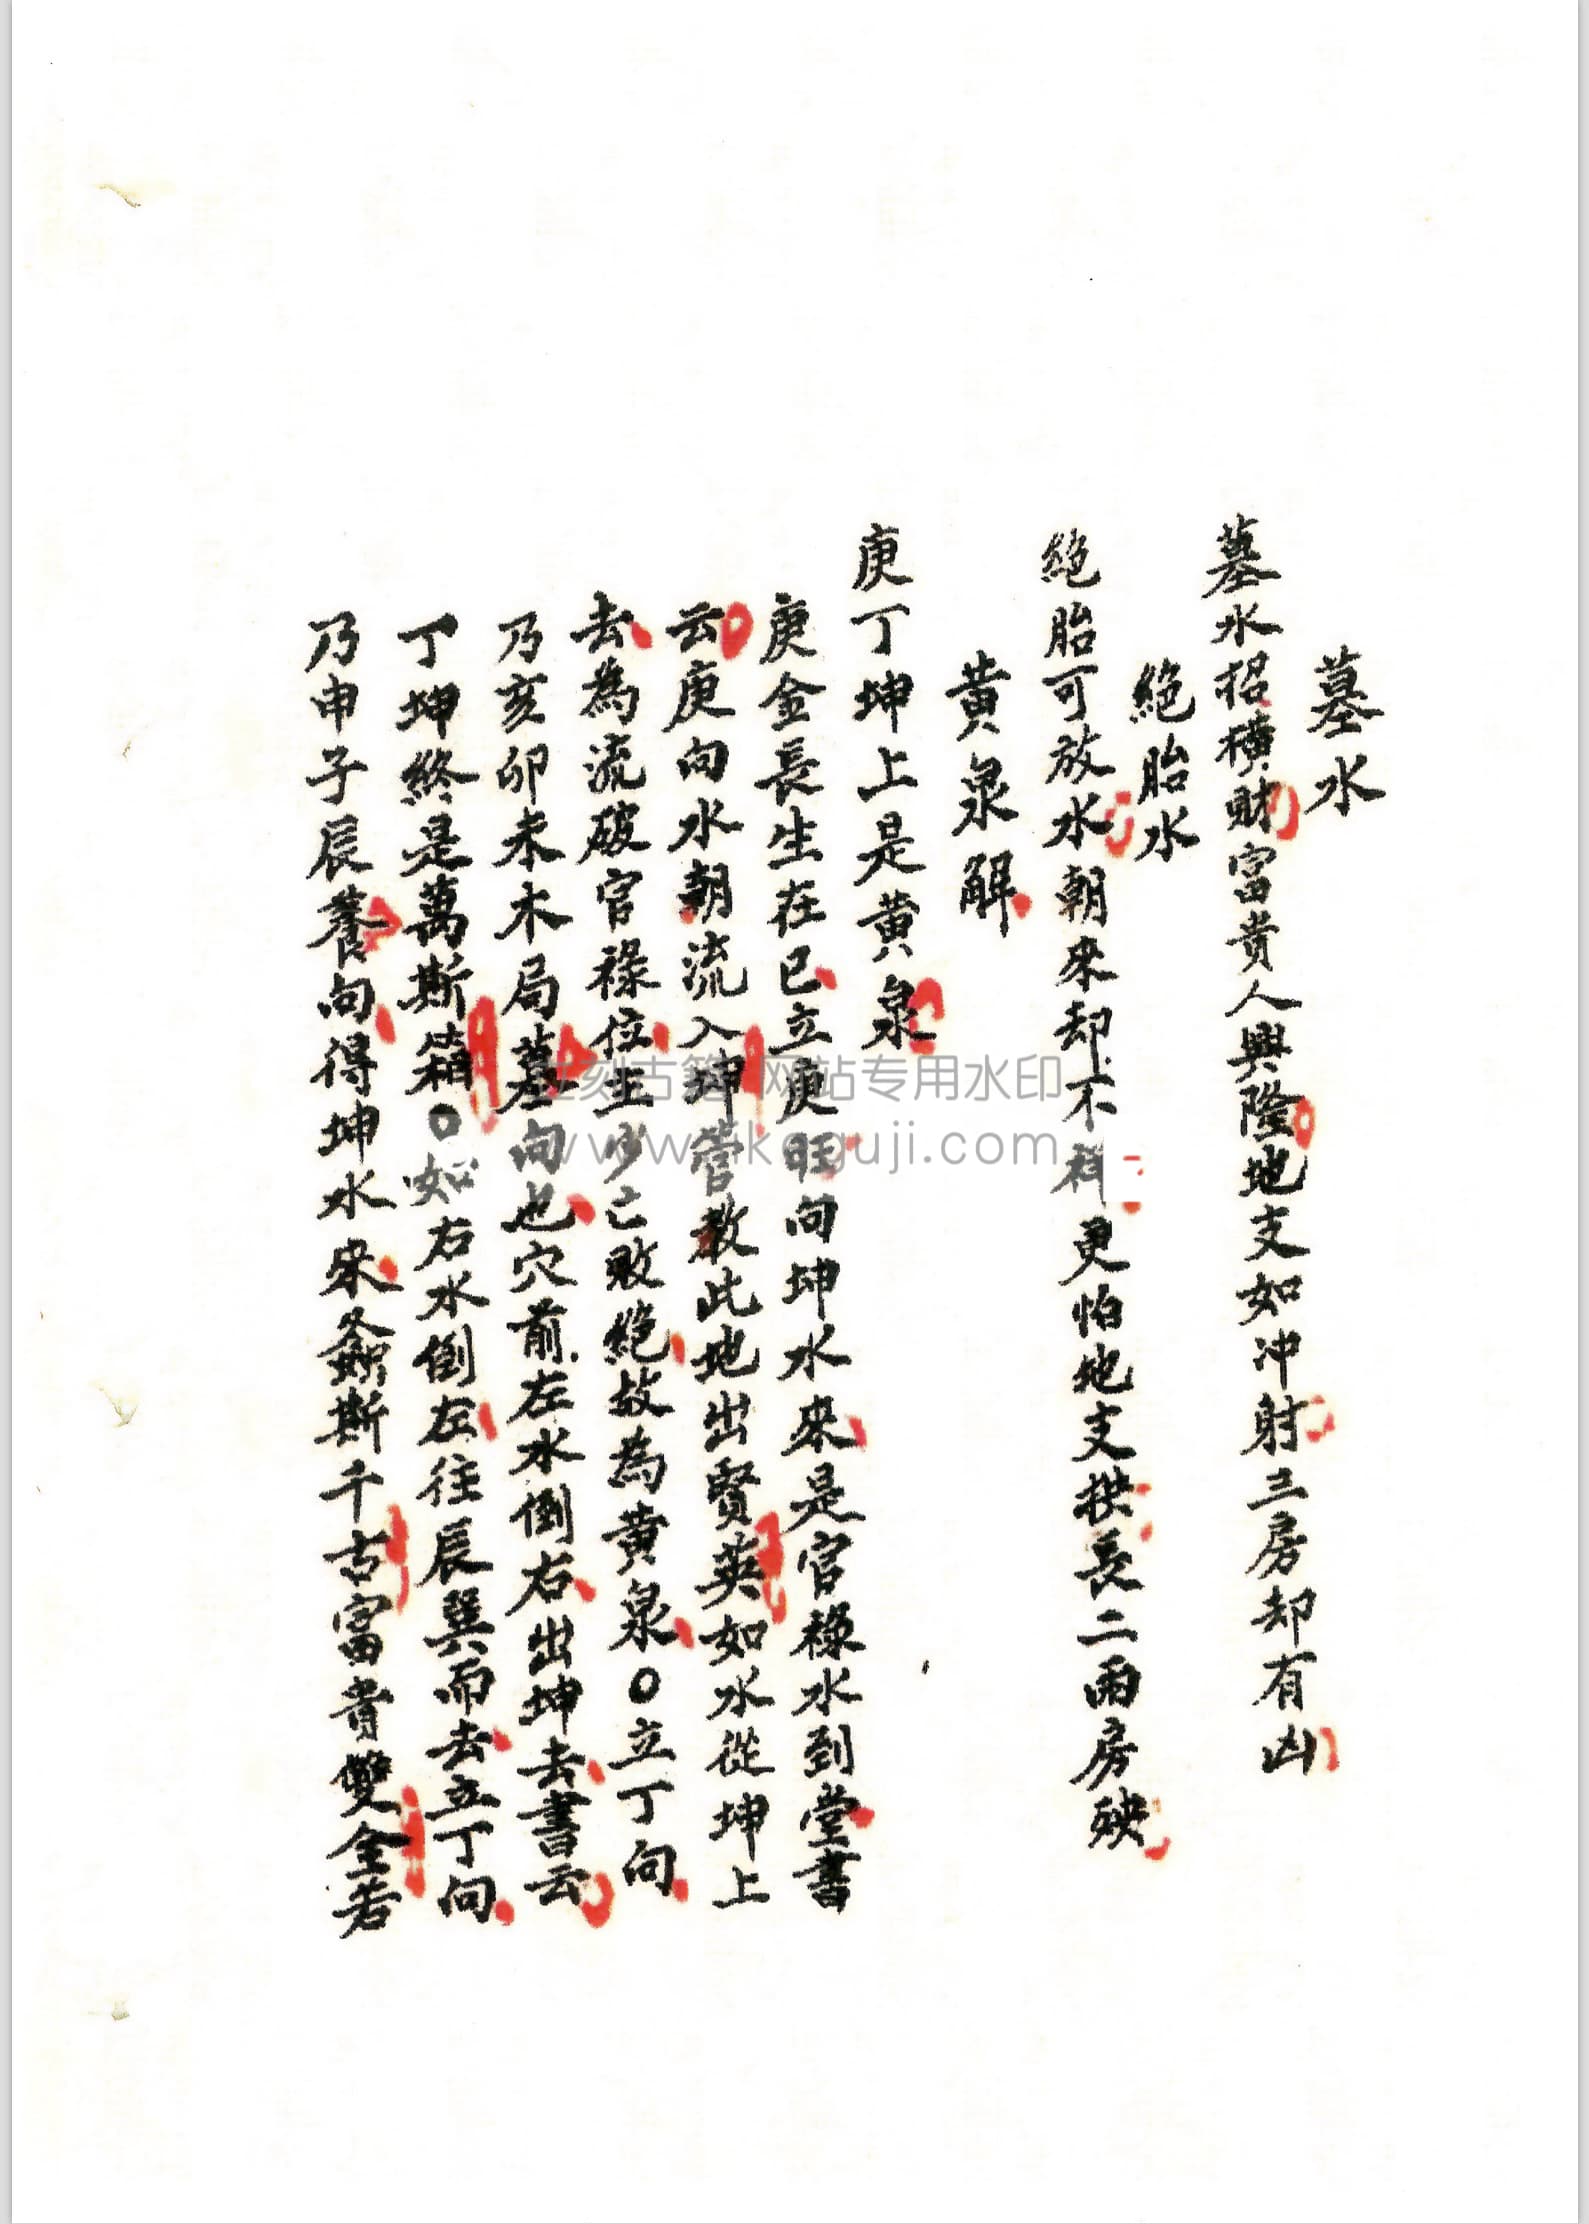 墓水
墓水招横財富貴人興隆地支如冲射三房却有凶
絕胎水
絕胎可放水朝來却不祥更怕地支拱長二兩房殃
黄泉解
庚丁坤上是黄泉
庚金長生在巳立庚旺向坤水來是官祿水到堂書
云庚向水朝流入坤管教此地出賢英如水從坤上
去為流破官祿位主少亡敗絕故為黄泉○立丁向
乃亥卯未木局墓向也穴前左水倒右出坤去書云
丁坤終是萬斯箱○如右水倒左往辰巽而去立丁向
乃申子辰養向得坤水來螽斯千古富貴雙全若
立刻古籍 网站专用水印